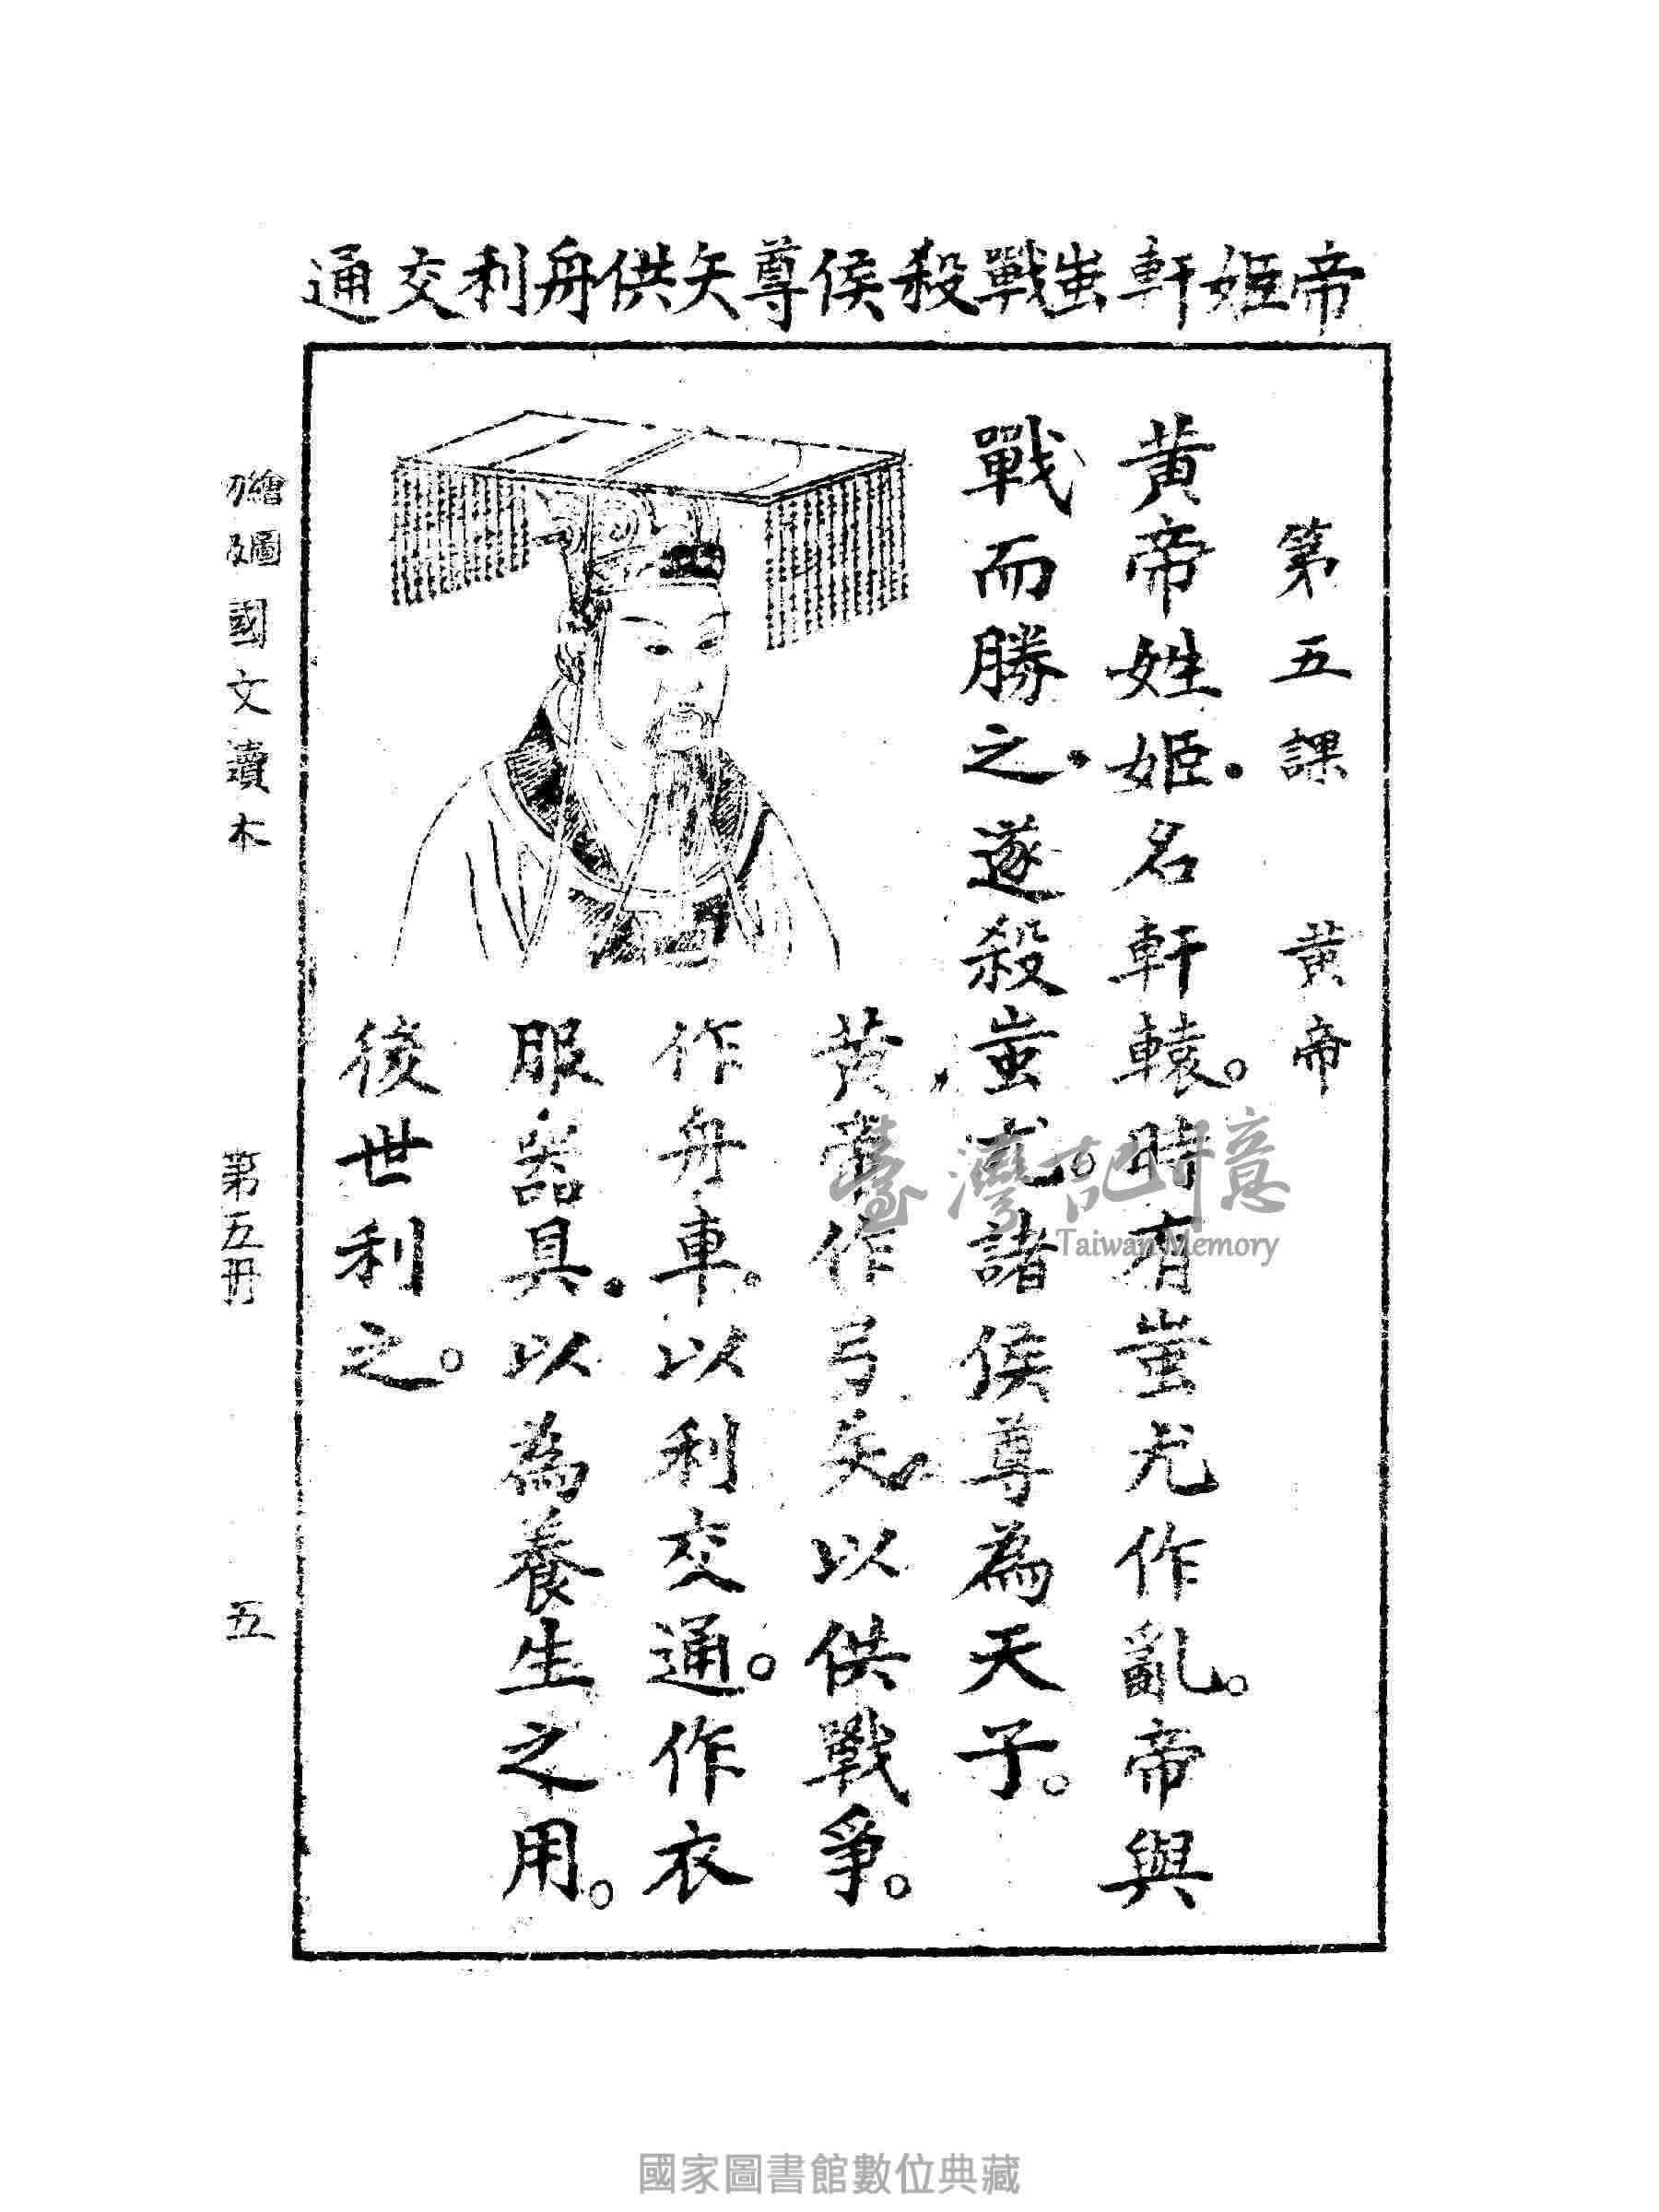 帝姬軒蚩戰殺侯尊矢供舟利交通
第五課　黃帝
黃帝姓姬．名軒轅。時有蚩尤作亂。帝與
戰而勝之．遂殺蚩尤。諸侯尊為天子。
黃帝作弓矢．以供戰爭。
作舟車．以利交通。作衣
服器具．以為養生之用。
後世利之。
繪圖國文讀本　第五冊　五
臺灣記憶
Taiwan Memory
國家圖書館數位典藏